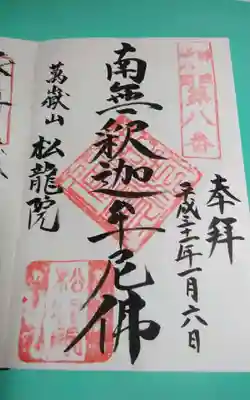 奉拝
平成三十一年一月六日
第八番
南無釈迦牟尼佛
萬嶽山 松龍院